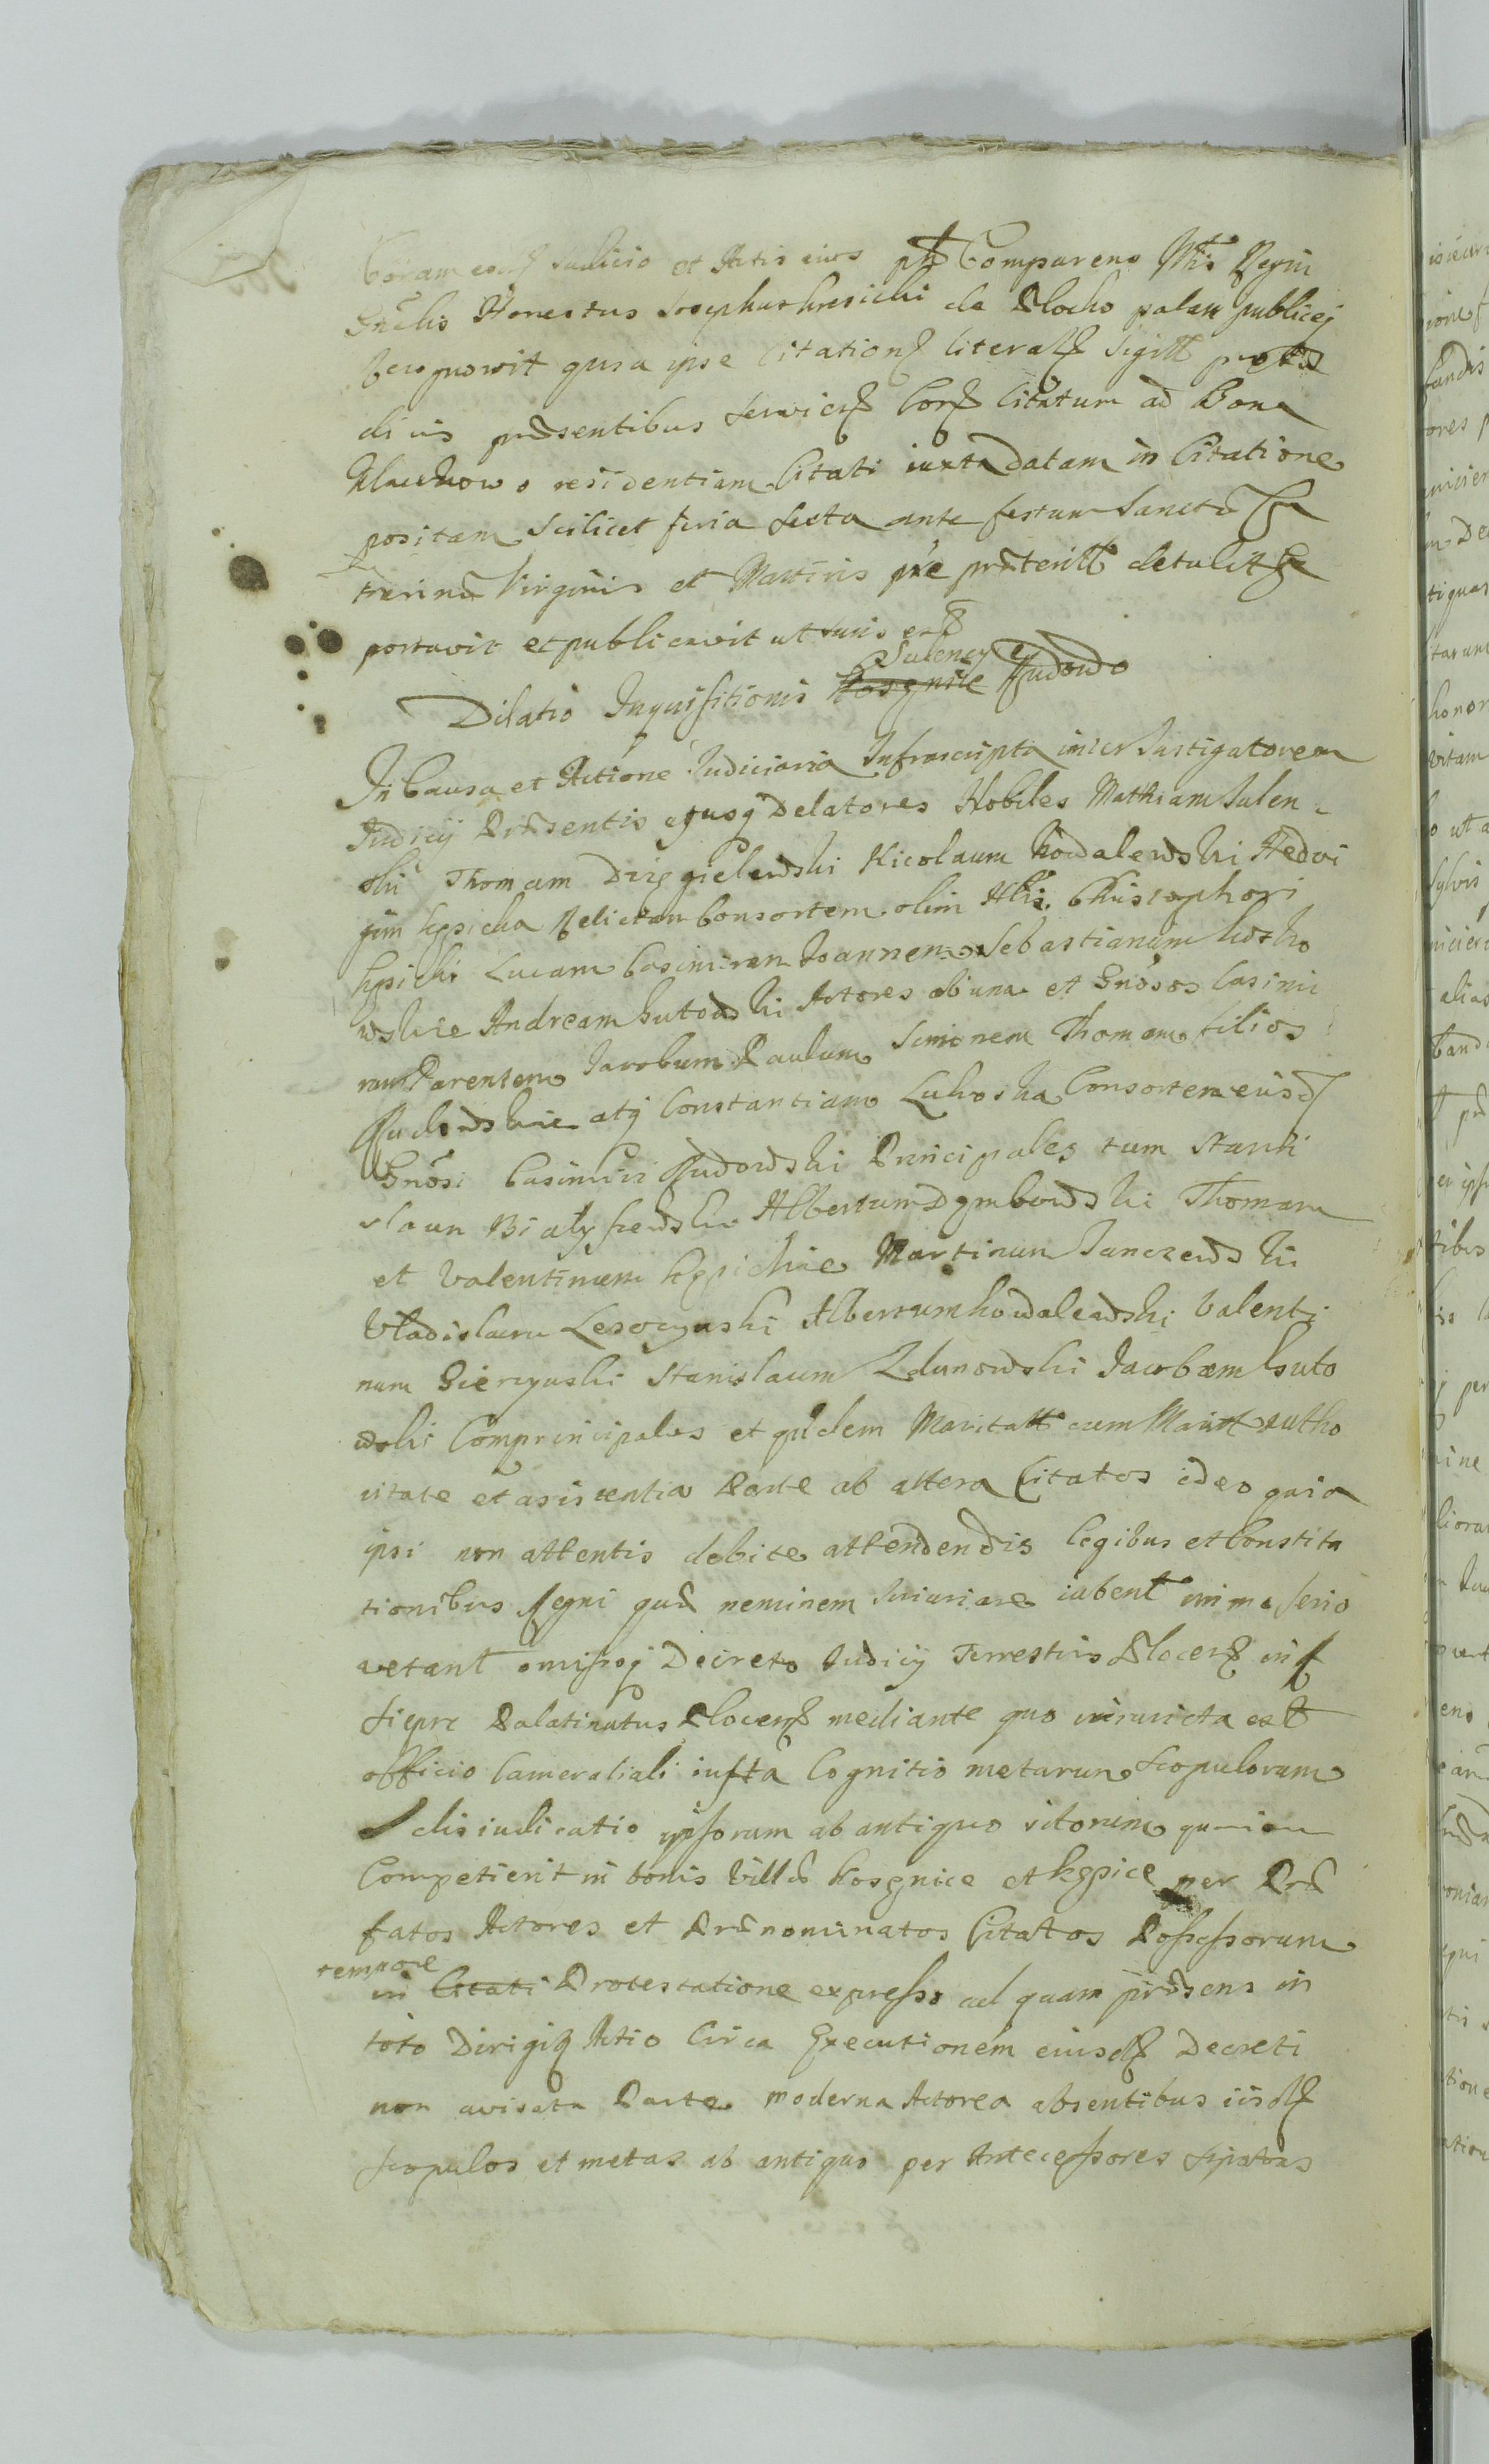 Coram eodem Iudicio et Actis eius Comparens Mtis Regni
Gnalis Honestus Josephus Kresicki de Plocko palam publiceq
Recognowit quia ipse Citationem literalem Sigill
dius præsentibus Citatum ad Bona
residentiam Citati iuxta datam in Citatione
positam Scilicet feria Sexta ante festum Sanctæ Ca
trarinæ Virginis et Martiris præterit detulit
portavit et publicavit ut Iuris est
Sulency
Dilatio Inquisitionis Kosznice Rudowo
In Causa et Actione Iudiciaria Infrascripta inter Instigatorem
Iudicij Præsentis ejusq Delatores Nobiles Mathiam Sulen
ski Thomam Dzięgielewski Nicolaum Kowalewski Hedvi
gim Kępicka Relictam Consortem olim Christophori
Kępicki Lucam Casimirum Joannem Sebastianum
wskie Andream Gutowski Actores ab una et Gnosos Casimi
rum Parentem Jacobum Paulum Simonem Thomam filios
Rudowskie atq Constantiam Lukoska Consortem eiusd
Gnosi Casimiri Rudowski Principales tum Stani
slaum Białyszewski Albertum Dymbowski Thomam
et Valentinum Kępickie Martinum Janczewski
Vladislaum Lesocynski Albertum Kowalewski Valenti
num Gierzynski Stanislaum Zdunowski Jacobum Guto
wski Comprincipales et quidem Maritatt cum Maritt autho
ritate et asistentia Parte ab altera Citatos ideo quia
ipsi non attentis debite attendendis legibus et Constitu
tionibus Regni quæ neminem Iniuriare iubent immo serio
vetant omissoq Decreto Iudicij Terrestris Plocen in
Siepre Palatinatus Plocen mediante quo iniuncta est
officio Cameraliali iusta Cognitio metarum Scopulorum
disiudicatio ipsorum ab antiquo sitorum
Competierit in bonis Villæ Kosznice et Kępice per Præ
fatos Actores et Prænominatos Citatos Possessorum
tempore
in Citati Protestatione expresso ad quam præsens in
toto Dirigitq Actio Circa Executionem eiusdem Decreti
non avisata Parte moderna Actorea absentibus iisdem
Scopulos et metas ab antiquo per Antecessores Sipatas